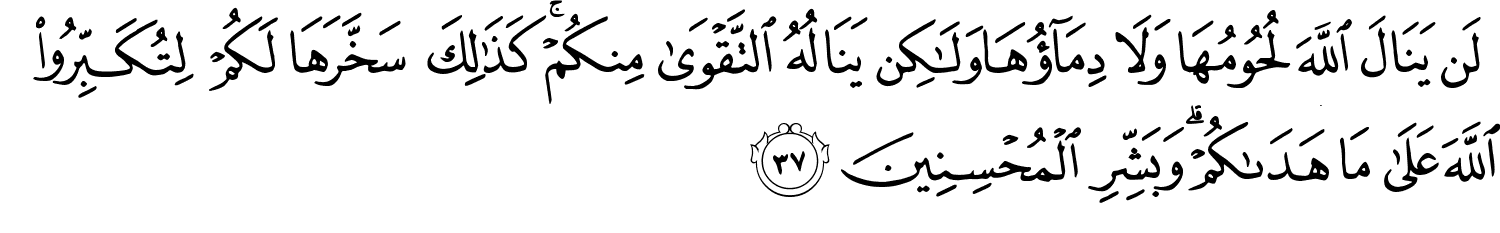 لَن يَنَالَ ٱللَّهَ لُحُومُهَا وَلَا دِمَآؤُهَا وَلَـٰكِن يَنَالُهُ ٱلتَّقْوَىٰ مِنكُمْ ۚ كَذَٰلِكَ سَخَّرَهَا لَكُمْ لِتُكَبِّرُوا۟
ٱللَّهَ عَلَىٰ مَا هَدَىٰكُمْ ۗ وَبَشِّرِ ٱلْمُحْسِنِينَ ٣٧